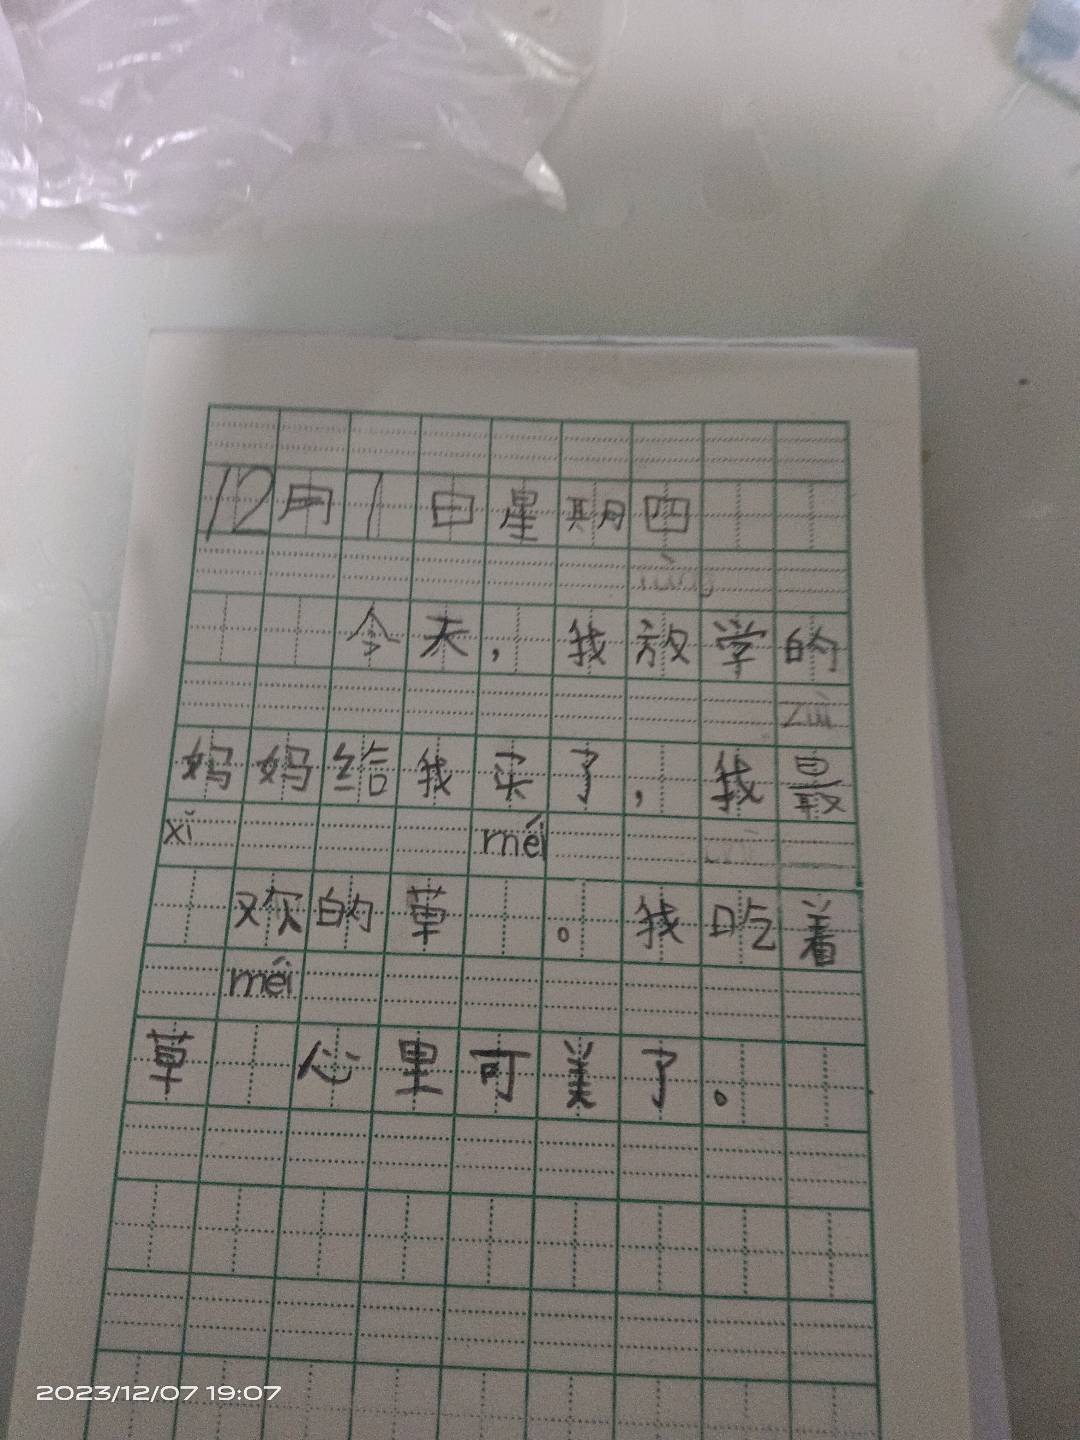 12月7日星期四
今天，我放学的
zuì
妈妈给我买了，我最
xǐ méi
欢的草。我吃着
méi
草心里可美了。
2023/12/07 19:07